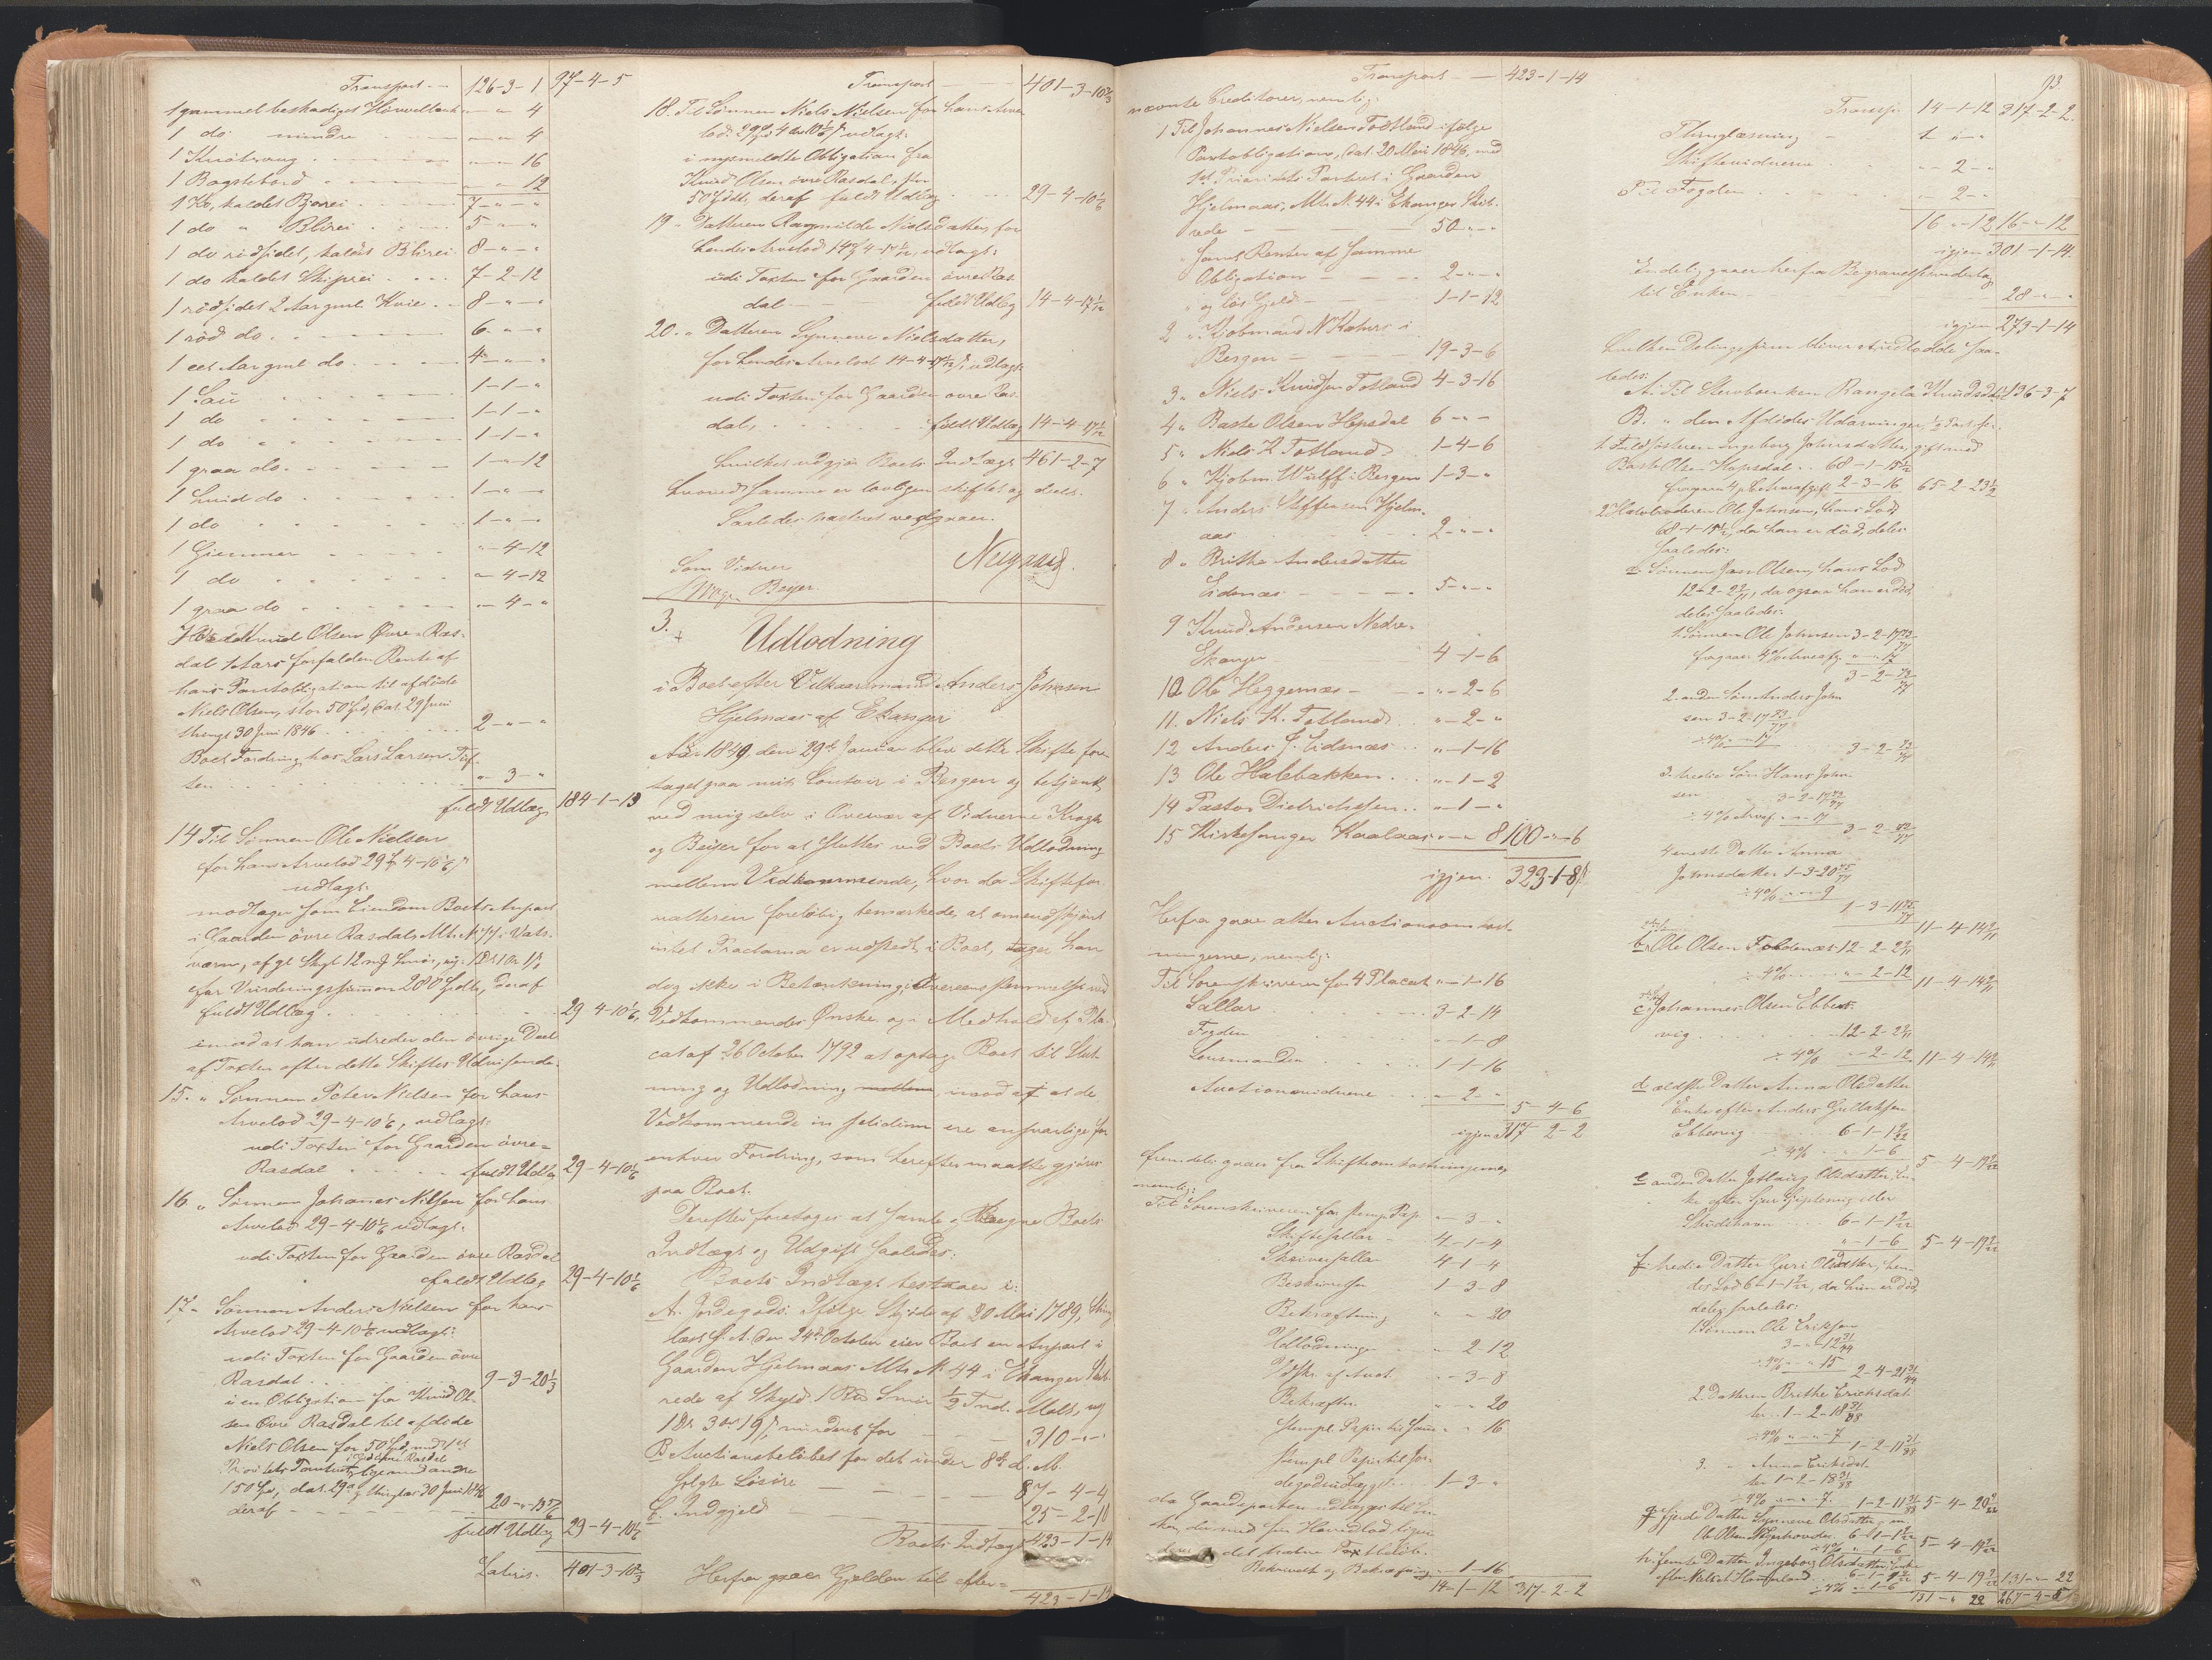 Transport — 126-3-1 97-4-5
1 gammel beskadiget
" - " - 4
1 do mindre " - " - 4
1 " - " - 16
1 Bagstebord " - " - 12
1 Ko, kaldet 7 - " - "
1 do " Blirei 5 - " - "
1 do rødsidet, kaldet Blirei 8 - " - "
1 do kaldet Skiprei 7-2-12
1 rødsidet 2 Aar gml. Kvie 8 - " - "
1 rød do. 6 - " - "
1 eet Aar gml. do 4 - " - "
1 Sau 1-1-"
1 do 1-1-"
1 do 1-1-"
1 graa do. 1-"-12
1 hvid do 1-"-"
1 do 1-"-"
1 Giemmer "-4-12
1 do "-4-12
1 graa do "-4-"
Hos Knud Olsen Øvre Ras-
dal 1 Aars forfalden Rente af
hans Pantobligation til afdøde
Niels Olsen, stor 50 Spd, dat. 29 Juni
thingl. 30 Juni 1846 2-"-"
Boets Fordring hos Lars Larsen Tuf-
ten "-3-"
fuldt Udlæg 184-1-13
14 Til Sønnen Ole Nielsen
for hans Arvelod 29 4-10 1/6
udlagt:
modtager som Eiendom Boets Anpart
i Gaarden øvre Rasdal, Mtr. N.
for Vurderingssummen 280 Spdlr, deraf
fuldt Udlæg 29-4-10 1/6
imod at han udreder den øvrige Deel
af Taxten efter dette Skiftes Udvisende.
15. " Sønnen Peter Nielsen for hans
Arvelod 29-4-10 1/6, udlagt:
udi Taxten for Gaarden øvre
Rasdal fuldt Udlæg 29-4-10 1/6
16 " Sønnen Johannes Nielsen for hans
Arvelod 29-4-10 1/6 udlagt:
udi Taxten for Gaarden øvre Rasdal
fuldt Udlæg 29-4-10 1/6
17 " Sønnen Anders Nielsen for hans
Arvelod 29-4-10 1/6 udlagt:
udi Taxten for Gaarden øvre
Rasdal 9-3-20 1/3
i en Obligation fra Knud Ol-
sen Øvre Rasdal til afdøde
Niels Olsen for 50 Spd, med 1st
Prioritets Panteret
150 Spd, dat. 29 og thinglæst 30 Juni 1846
deraf 20-"-13 5/6
fuldt Udlæg 29-4-10 1/6
Lateris. 401-3-10 2/3
Transport 401-3-10 2/3
18. Til Sønnen Niels Nielsen for hans Arve-
lod 29 4 10 1/6 udlagt:
i nysmeldte Obligation fra
Knud Olsen øvre Rasdal, stor
50 Spdlr, deraf fuldt Udlæg 29-4-10 1/6
19 " Datteren Ragnilde Nielsdatter, for
hendes Arvelod 14 4-17 1/12, udlagt:
udi Taxten for Gaarden øvre Ras-
dal fuldt Udlæg 14-4-17 1/12
20. " Datteren Synneve Nielsdatter,
for hendes Arvelod 14-4-17 1/12 udlagt:
udi Taxten for Gaarden øvre Ras-
dal, fuldt Udlæg 14-4-17 1/12
hvilket udgjør Boets Indtægt 461-2-7
hvorved samme er lovligen skiftet og deelt.
Saaledes passeret vedgaaer.
Som Vidner Neugaard.
Krogh. Beyer.
3.
Udlodning
i Boet efter Vilkaarsmand Anders Johnsen
Hjelmaas af Ekanger
Aar 1849, den 29de Januar blev dette Skifte fore-
taget paa mit Contoir i Bergen og betjent
ved mig selv i Overvær af Vidnerne Krogh
og Beyer for at sluttes ved Boets Udlodning
mellem Vedkommende, hvor da Skiftefor-
valteren foreløbig bemærkede, at omendskjønt
intet Proclama er udstedt i Boet, tager han
dog ikke i Betænkning, i Overeensstemmelse med
Vedkommendes Ønske og i Medhold af Pla-
cat af 26 October 1792 at optage Boet til Slut-
ning og Udlodning mellem, imod at de
Vedkommende in solidum ere ansvarlige for
enhver Fordring, som herefter maatte gjøres
paa Boet.
Derefter foretoges at samle og beregne Boets
Indtægt og Udgift saaledes:
Boets Indtægt bestaaer i:
A. Jordegods: Ifølge Skjøde af 20 Mai 1789, thing-
læst s. A. den 24de October eier Boet en Anpart i
Gaarden Hjelmaas Mtr. N. 44 i Ekanger Skib-
rede af Skyld 1 Pd Smør 1/2 Tnd. Malt, ny
1 Dlr 3 Ort 19 s, vurderet for 310-"-"
B. Auctionsbeløbet for det under 8de d. M.
solgte Løsøre 87-4-4
C. Indgjeld 25-2-10
Boets Indtægt 423-1-14
Herfra gaaer Gjelden til efter-
423-1-14
Transport 423-1-14
nævnte Creditorer, nemlig:
1 Til Johannes Nielsen Totland ifølge
Pantobligation, dat. 20 Mai 1846, med
1st Prioritets Panteret i Gaarden
Hjelmaas, Mtr. N. 44 i Ekanger Skib-
rede 50-"-"
" Samt Renter af samme
Obligation 2-"-"
" og løs Gjeld 1-1-12
2 " Kjøbmand N. i
Bergen 19-3-6
3 " Niels Knudsen Totland 4-3-16
4 " Baste Olsen Hopsdal 6-"-"
5 " Niels K. Totland 1-4-6
6 " Kjøbm. Wulff i Bergen 1-3-"
7 " Anders Steffensen Hjelm-
aas 2-"-"
8 " Brithe Andersdatter
Eidsnæs 5-"-"
9 Knud Andersen Nedre-
Ekanger 4-1-6
10 Ole Heggernæs "-2-6
11. Niels K. Totland "-2-"
12 Anders J. Eidsnæs "-1-16
13 Ole Halebakken "-1-2
14 Pastor Dietrichsen "-1-"
15 Kirkesanger Kaalaas "-"-8 100-"-6
igjen. 323-1-8
Herfra gaaer atter Auctionsomkost-
ningerne, nemlig:
Til Sorenskriveren for 4 Placater "-1-16
Sallar 3-2-14
Fogden "-1-8
Lensmanden 1-1-16
Auctionsvidnerne "-2-"
5-4-6
igjen 317-2-2
fremdeles gaaer fra Skifteomkostningerne
nemlig:
Til Sorenskriveren for stemp. Pap. "-3-"
Skiftesallar 4-1-4
Skriversallar 4-1-4
Beskrivelsen 1-3-8
Bekræftning "-"-20
Udlodninge "-2-12
Udskr. af Auct. "-3-8
Bekræftn. "-"-20
Stempl. Papir til samme "-"-16
Stempl. Papir til Jor-
degodsudlægget 1-3-"
da Gaardeparten udlægges til En-
ken, der med sin Hovedlod
det halve Taxtbeløb.
Bekræftning 1-16
14-1-12 317-2-2
93.
Transp. 14-1-12 317-2-2.
Thinglæsning 1-"-"
Skiftevidnerne "-2-"
Til Fogden "-2-"
16-"-12 16-"-12
igjen 301-1-14.
Endelig gaaer herfra Begravelsesudlæg
til Enken 28-"-"
igjen 273-1-14
hvilken Delingssum bliver at udlodde saa-
ledes:
A. Til Stervboenken Rangela Knudsdatter 136-3-7
B. " den Afdødes Udarvinger, 1/2 Part for:
1. Fuldsøsteren Ingeborg Johnsdatter, gift med
Baste Olsen Hopsdal 68-1-15 1/2
fragaar 4 pCt. Arveafgift 2-3-16 65-2-23 1/2
2. Halvbroderen Ole Johnsen, hans Lod
68-1-15 1/2, da han er død, deles
saaledes:
a. Sønnen Jon Olsen, hans Lod
12-2-2 2/11, da ogsaa han er død,
deles saaledes:
1. Sønnen Ole Johnsen 3-2-17
fragaar 4% Arveafg. "-"-17
3-2-"
2. anden Søn Anders John-
sen 3-2-17
÷ 4% "-"-17 3-2-"
3. tredie Søn Hans John-
sen 3-2-17
÷ 4% Arveaf. "-"-17 3-2-"
4. eneste Datter Anna
Johnsdatter 1-3-20
÷ 4% "-"-9
1-3-11
11-4-14 2/11
b. Ole Olsen Foldnæs 12-2-2 2/11
÷ 4% "-2-12 11-4-14 2/11
c. Johannes Olsen Ebbes-
vig 12-2-2 2/11
÷ 4% "-2-12 11-4-14 2/11
d. ældste Datter Anna Olsdatter
Enke efter Anders Gullaksen
Ebbesvig 6-1-1 2/22
÷ 4% "-1-6 5-4-19
e. anden Datter Olsdatter, En-
ke efter
6-1-1
"-1-6 5-4-19
f. tredie Datter Guri Olsdatter, hen-
des Lod 6-1-1, da hun er død,
deles saaledes:
1. Sønnen Ole Erikson
3-"-12
÷ 4% "-"-15 2-4-21
2. Datteren Brithe Erichsdat-
ter 1-2-18
÷ 4% "-"-7 1-2-11
3. " Anna Eriksdat-
ter 1-2-18
÷ 4% "-"-7. 1-2-11 5-4-20
g. fjerde Datter Synneve Olsdatter, m.
Ole Olsen 6-1-1
÷ 4% "-1-6 5-4-19
h. femte Datter Ingeborg Olsdatter Enke
efter 6-1-1
÷ 4% "-1-6 5-4-19 131-"-22
131-"-22 267-4-5